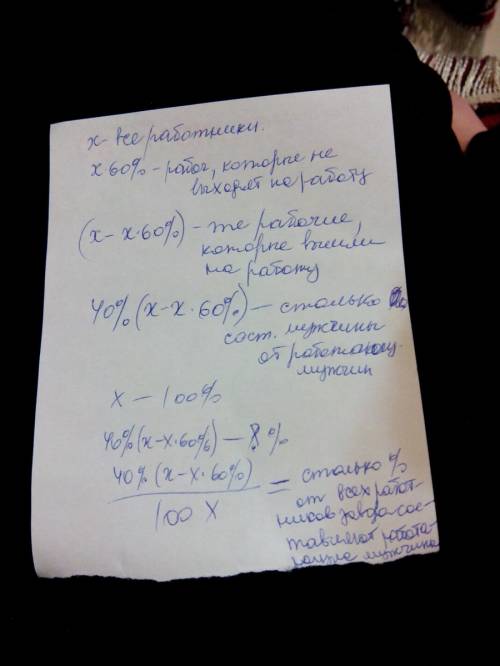 x - все работники.
x·60% - рабоч, которые не
выходят на работу
(x - x·60%) - те рабочие,
которые вышли
на работу
40% (x - x·60%) - столько
сост. мужчины
от
мужчин
x - 100%
40% (x - x·60%) - %
40% (x - x·60%) = столько %
100 x
от всех работ-
ников завода сос-
тавляют работа-
ющие мужчины